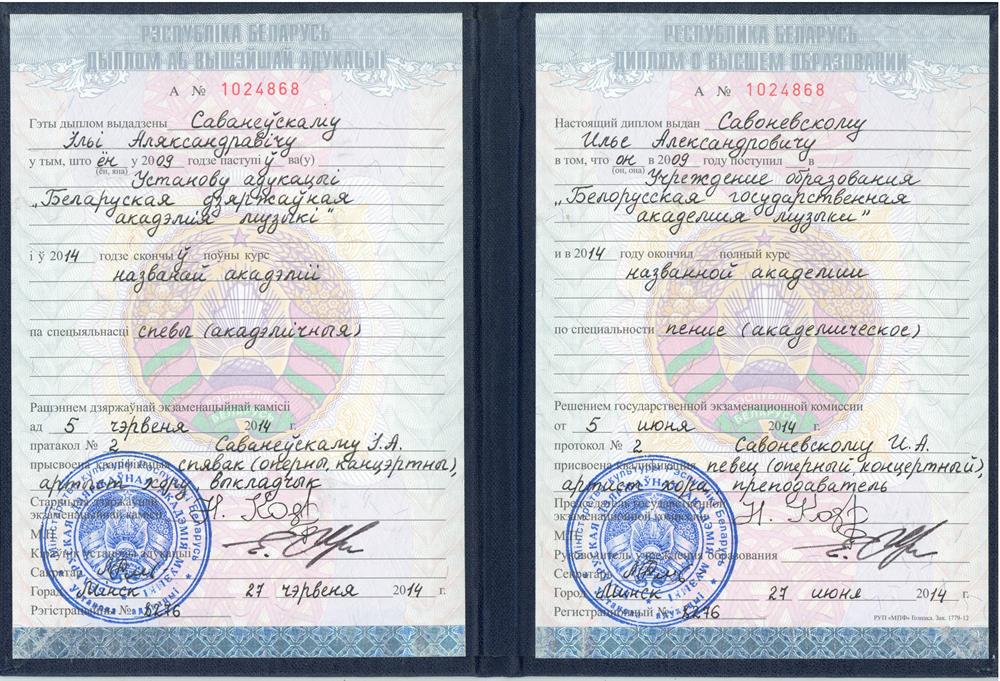 РЭСПУБЛІКА БЕЛАРУСЬ
ДЫПЛОМ АБ ВЫШЭЙШАЙ АДУКАЦЫІ
А № 1024868
Гэты дыплом выдадзены Саванеўскаму
Ільі Аляксандравічу
у тым, што ён у 2009 годзе паступіў ва(у)
(ён, яна)
Установу адукацыі
„Беларуская дзяржаўная
акадэмія музыкі"
і ў 2014 годзе скончыў поўны курс
названай акадэміі
па спецыяльнасці спевы (акадэмічныя)
Рашэннем дзяржаўнай экзаменацыйнай камісіі
ад 5 чэрвеня 2014 г.
пратакол № 2 Саванеўскаму І.А.
прысвоена кваліфікацыя спявак (оперны, канцэртны),
артыст хору, выкладчык
Старшыня дзяржаўнай
экзаменацыйнай камісіі
М.П.
Кіраўнік установы адукацыі
Сакратар
Горад Мінск 27 чэрвеня 2014 г.
Рэгістрацыйны № 8276
РЕСПУБЛИКА БЕЛАРУСЬ
ДИПЛОМ О ВЫСШЕМ ОБРАЗОВАНИИ
А № 1024868
Настоящий диплом выдан Савоневскому
Илье Александровичу
в том, что он в 2009 году поступил в
(он, она)
Учреждение образования
„Белорусская государственная
академия музыки"
и в 2014 году окончил полный курс
названной академии
по специальности пение (академическое)
Решением государственной экзаменационной комиссии
от 5 июня 2014 г.
протокол № 2 Савоневскому И.А.
присвоена квалификация певец (оперный, концертный),
артист хора, преподаватель
Председатель государственной
экзаменационной комиссии
М.П.
Руководитель учреждения образования
Секретарь
Город Минск 27 июня 2014 г.
Регистрационный № 8276
РУП «МПФ» Гознака. Зак. 1779-12